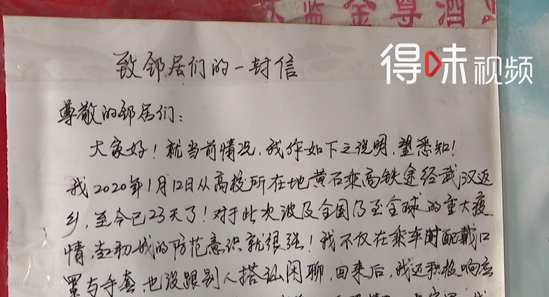 监 金尊酒
得味视频
致邻居们的一封信
尊敬的邻居们:
大家好！就当前情况，我作如下之说明，望悉知！
我2020年1月12日从高校所在地黄石乘高铁途经武汉返
乡，至今已23天了！对于此次波及全国乃至全球的重大疫
情，起初我的防范意识就很强！我不仅在乘车时配戴口
罩与手套，也没跟别人搭讪闲聊，回来后，我还积极响应